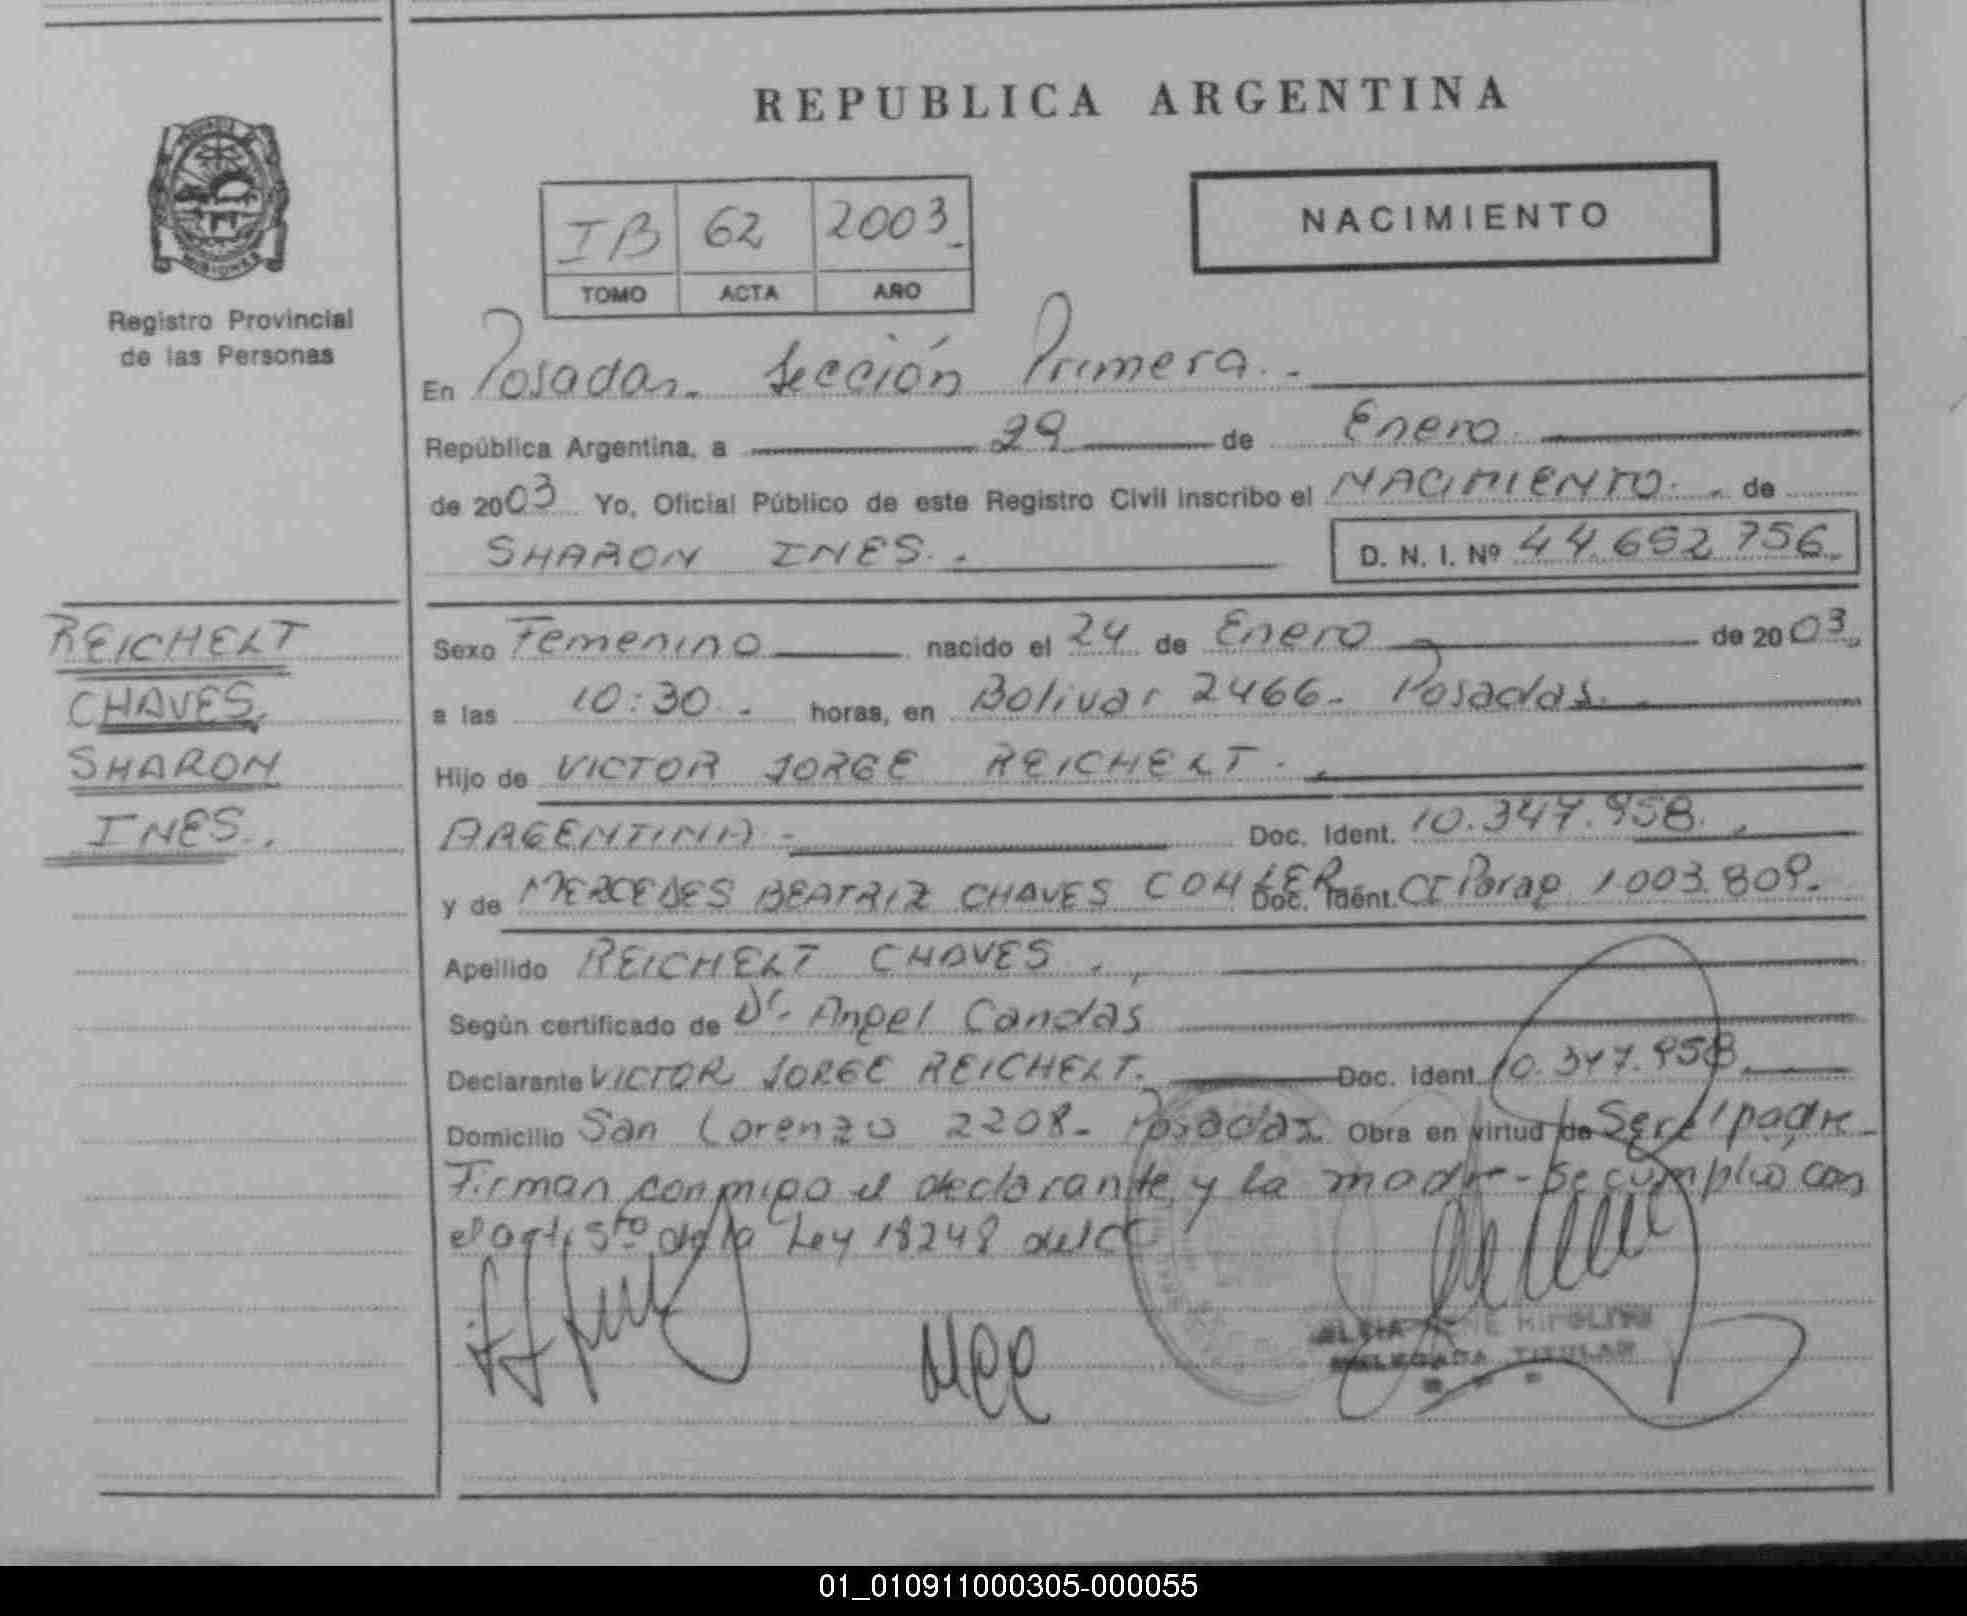 REPUBLICA ARGENTINA
MISIONES
Registro Provincial
de las Personas
IB 62 2003
TOMO ACTA AÑO
NACIMIENTO
En Posadas. Sección Primera.
República Argentina, a 29 de Enero
de 2003 Yo, Oficial Público de este Registro Civil inscribo el NACIMIENTO. de
SHARON INES.
D. N. I. Nº 44.692.756
REICHELT
CHAVES
SHARON
INES.
Sexo Femenino nacido el 24 de Enero de 2003
a las 10:30 horas, en Bolivar 2466. Posadas.
Hijo de VICTOR JORGE REICHELT.
ARGENTINA Doc. Ident. 10.347.958.
y de MERCEDES BEATRIZ CHAVES Doc. Ident. CI Parag 1.003.809.
Apellido REICHELT CHAVES.
Según certificado de Dr. Angel Candas
Declarante VICTOR JORGE REICHELT. Doc. Ident. 10.347.958
Domicilio San Lorenzo 2208. Posadas. Obra en virtud de Ser el padre
Firman conmigo el declarante y la madre - Se cumplió con
el art. 5to de la Ley 18248 del CC
MCC
DELEGADA TITULAR
01_010911000305-000055